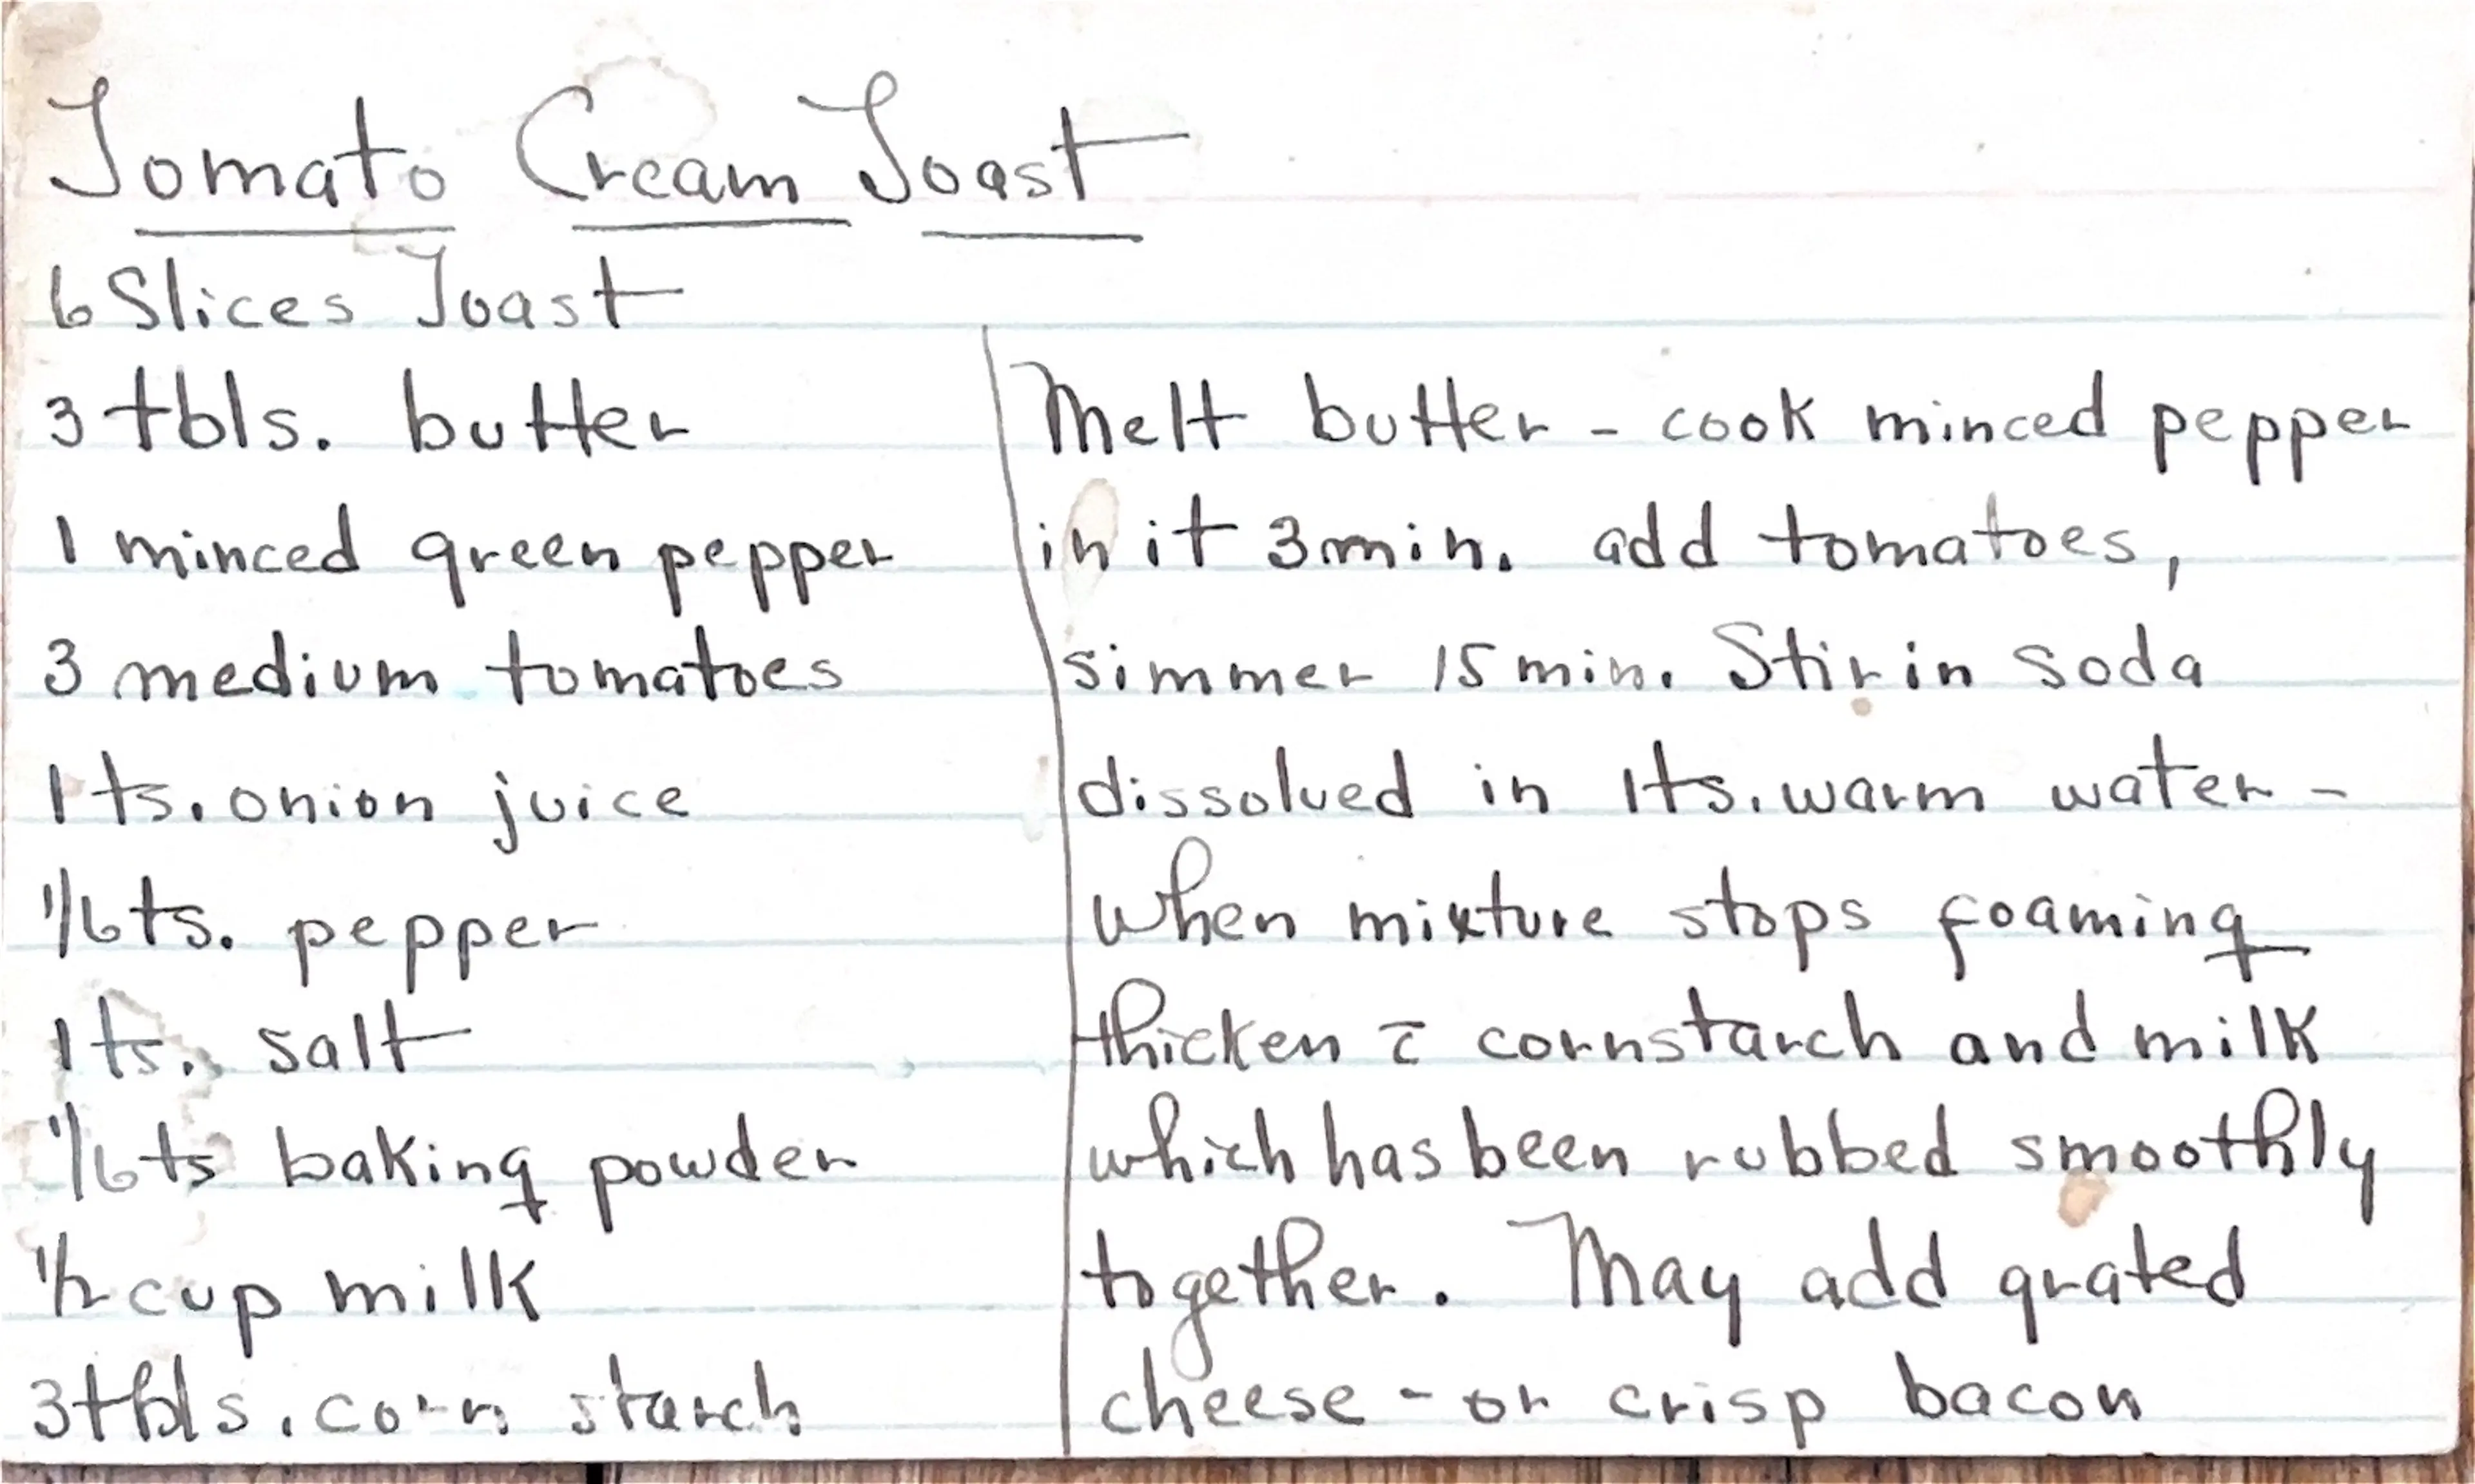 Tomato Cream Toast
6 Slices Toast
3 tbls. butter
1 minced green pepper
3 medium tomatoes
1 ts. onion juice
1/6 ts. pepper
1 ts. salt
1/6 ts baking powder
1/2 cup milk
3 tbls. corn starch
Melt butter - cook minced pepper
in it 3 min. add tomatoes,
simmer 15 min. Stir in soda
dissolved in 1 ts. warm water -
when mixture stops foaming
thicken c̄ cornstarch and milk
which has been rubbed smoothly
together. May add grated
cheese - or crisp bacon